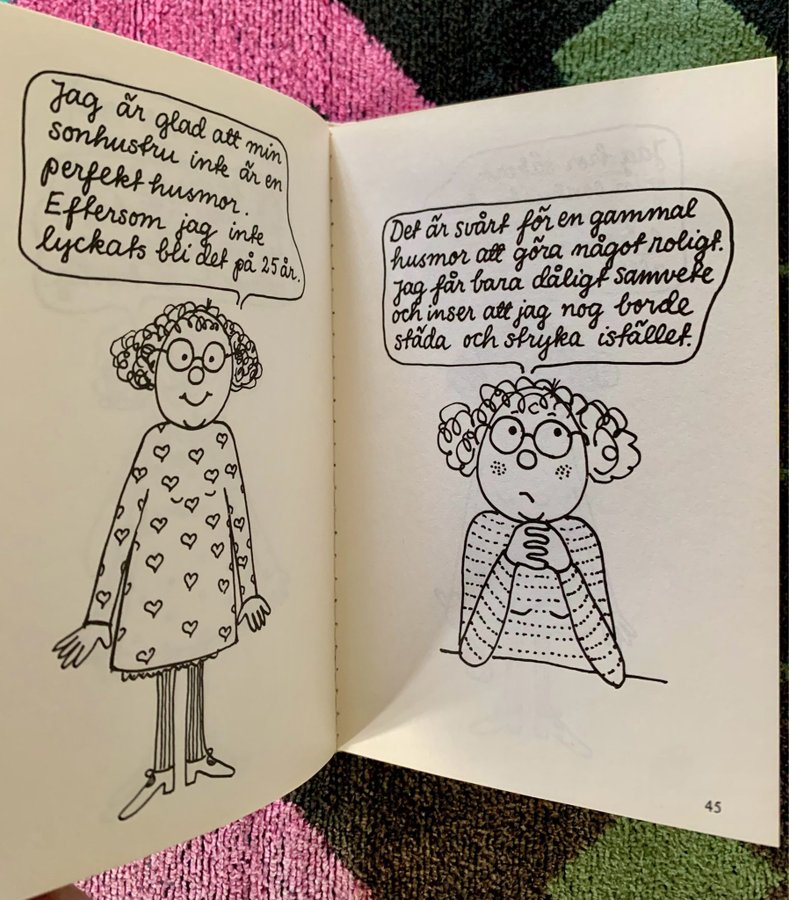 Jag är glad att min
sonhustru inte är en
perfekt husmor.
Eftersom jag inte
lyckats bli det på 25 år.
Det är svårt för en gammal
husmor att göra något roligt.
Jag får bara dåligt samvete
och inser att jag nog borde
städa och stryka istället.
45